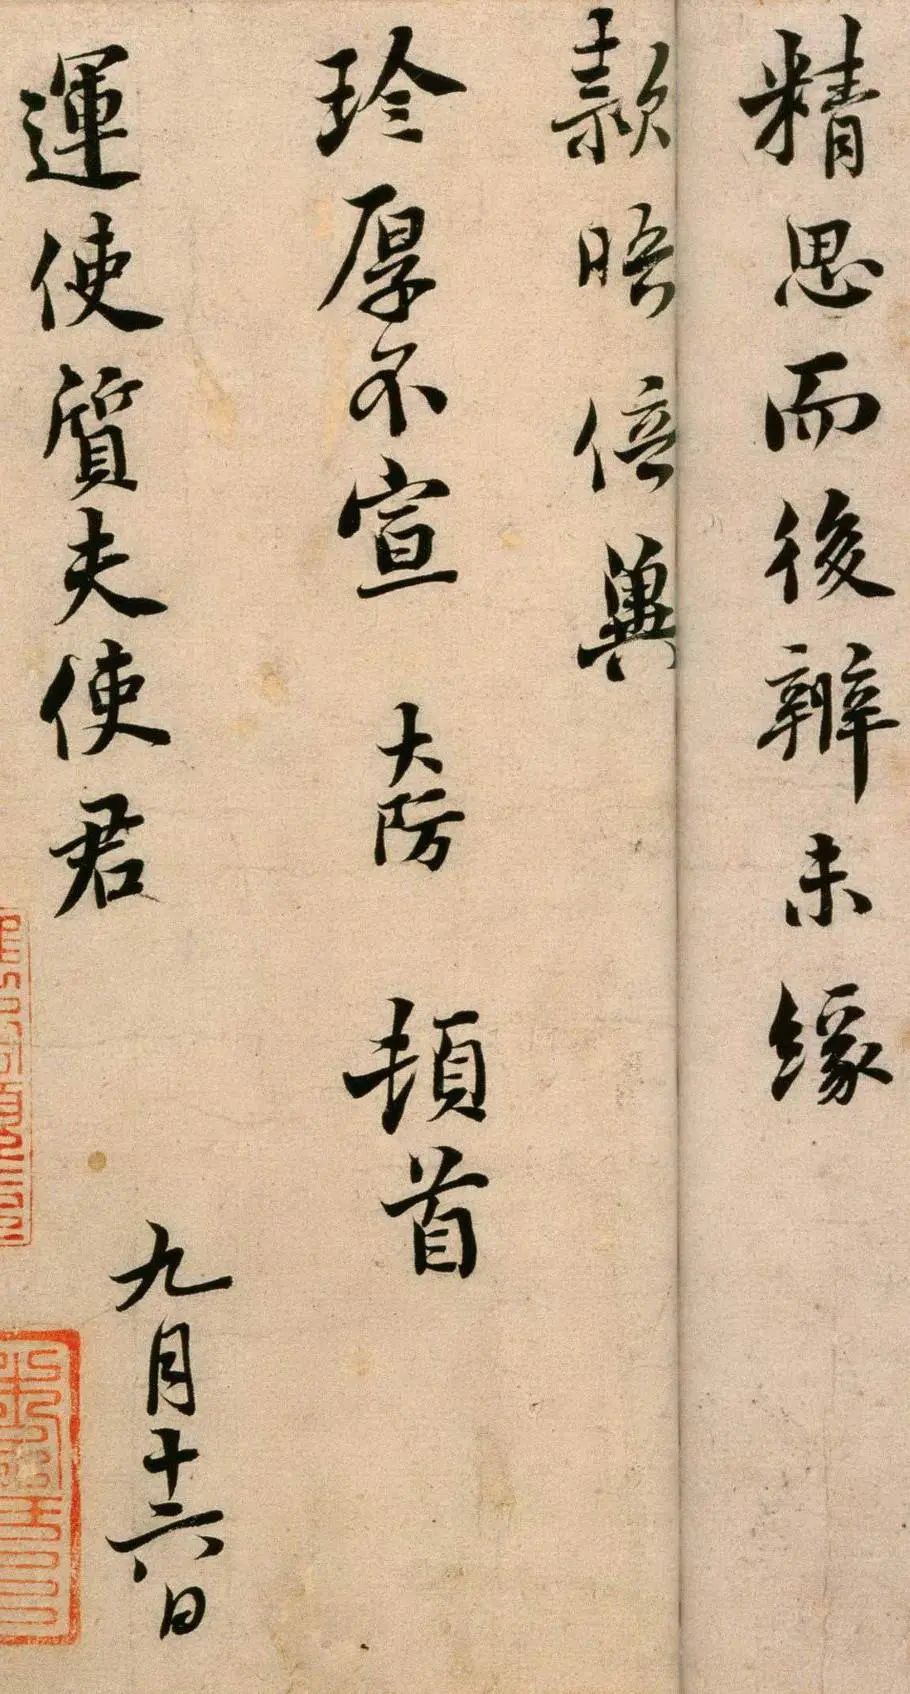 精思而後辦未緣
款晤倍冀
珍厚不宣 大防 頓首
運使質夫使君
九月十六日